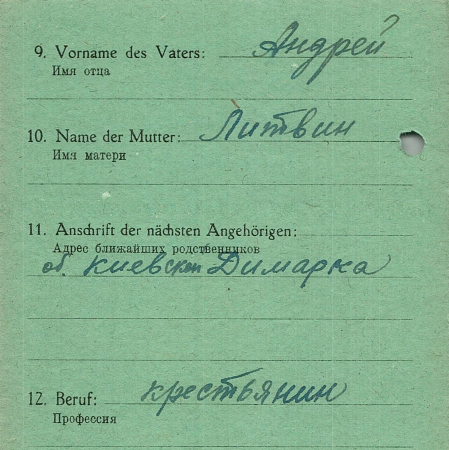 9. Vorname des Vaters: Андрей
Имя отца
10. Name der Mutter: Литвин
Имя матери
11. Anschrift der nächsten Angehörigen:
Адрес ближайших родственников
об. Киевская Димарка
12. Beruf: крестьянин
Профессия